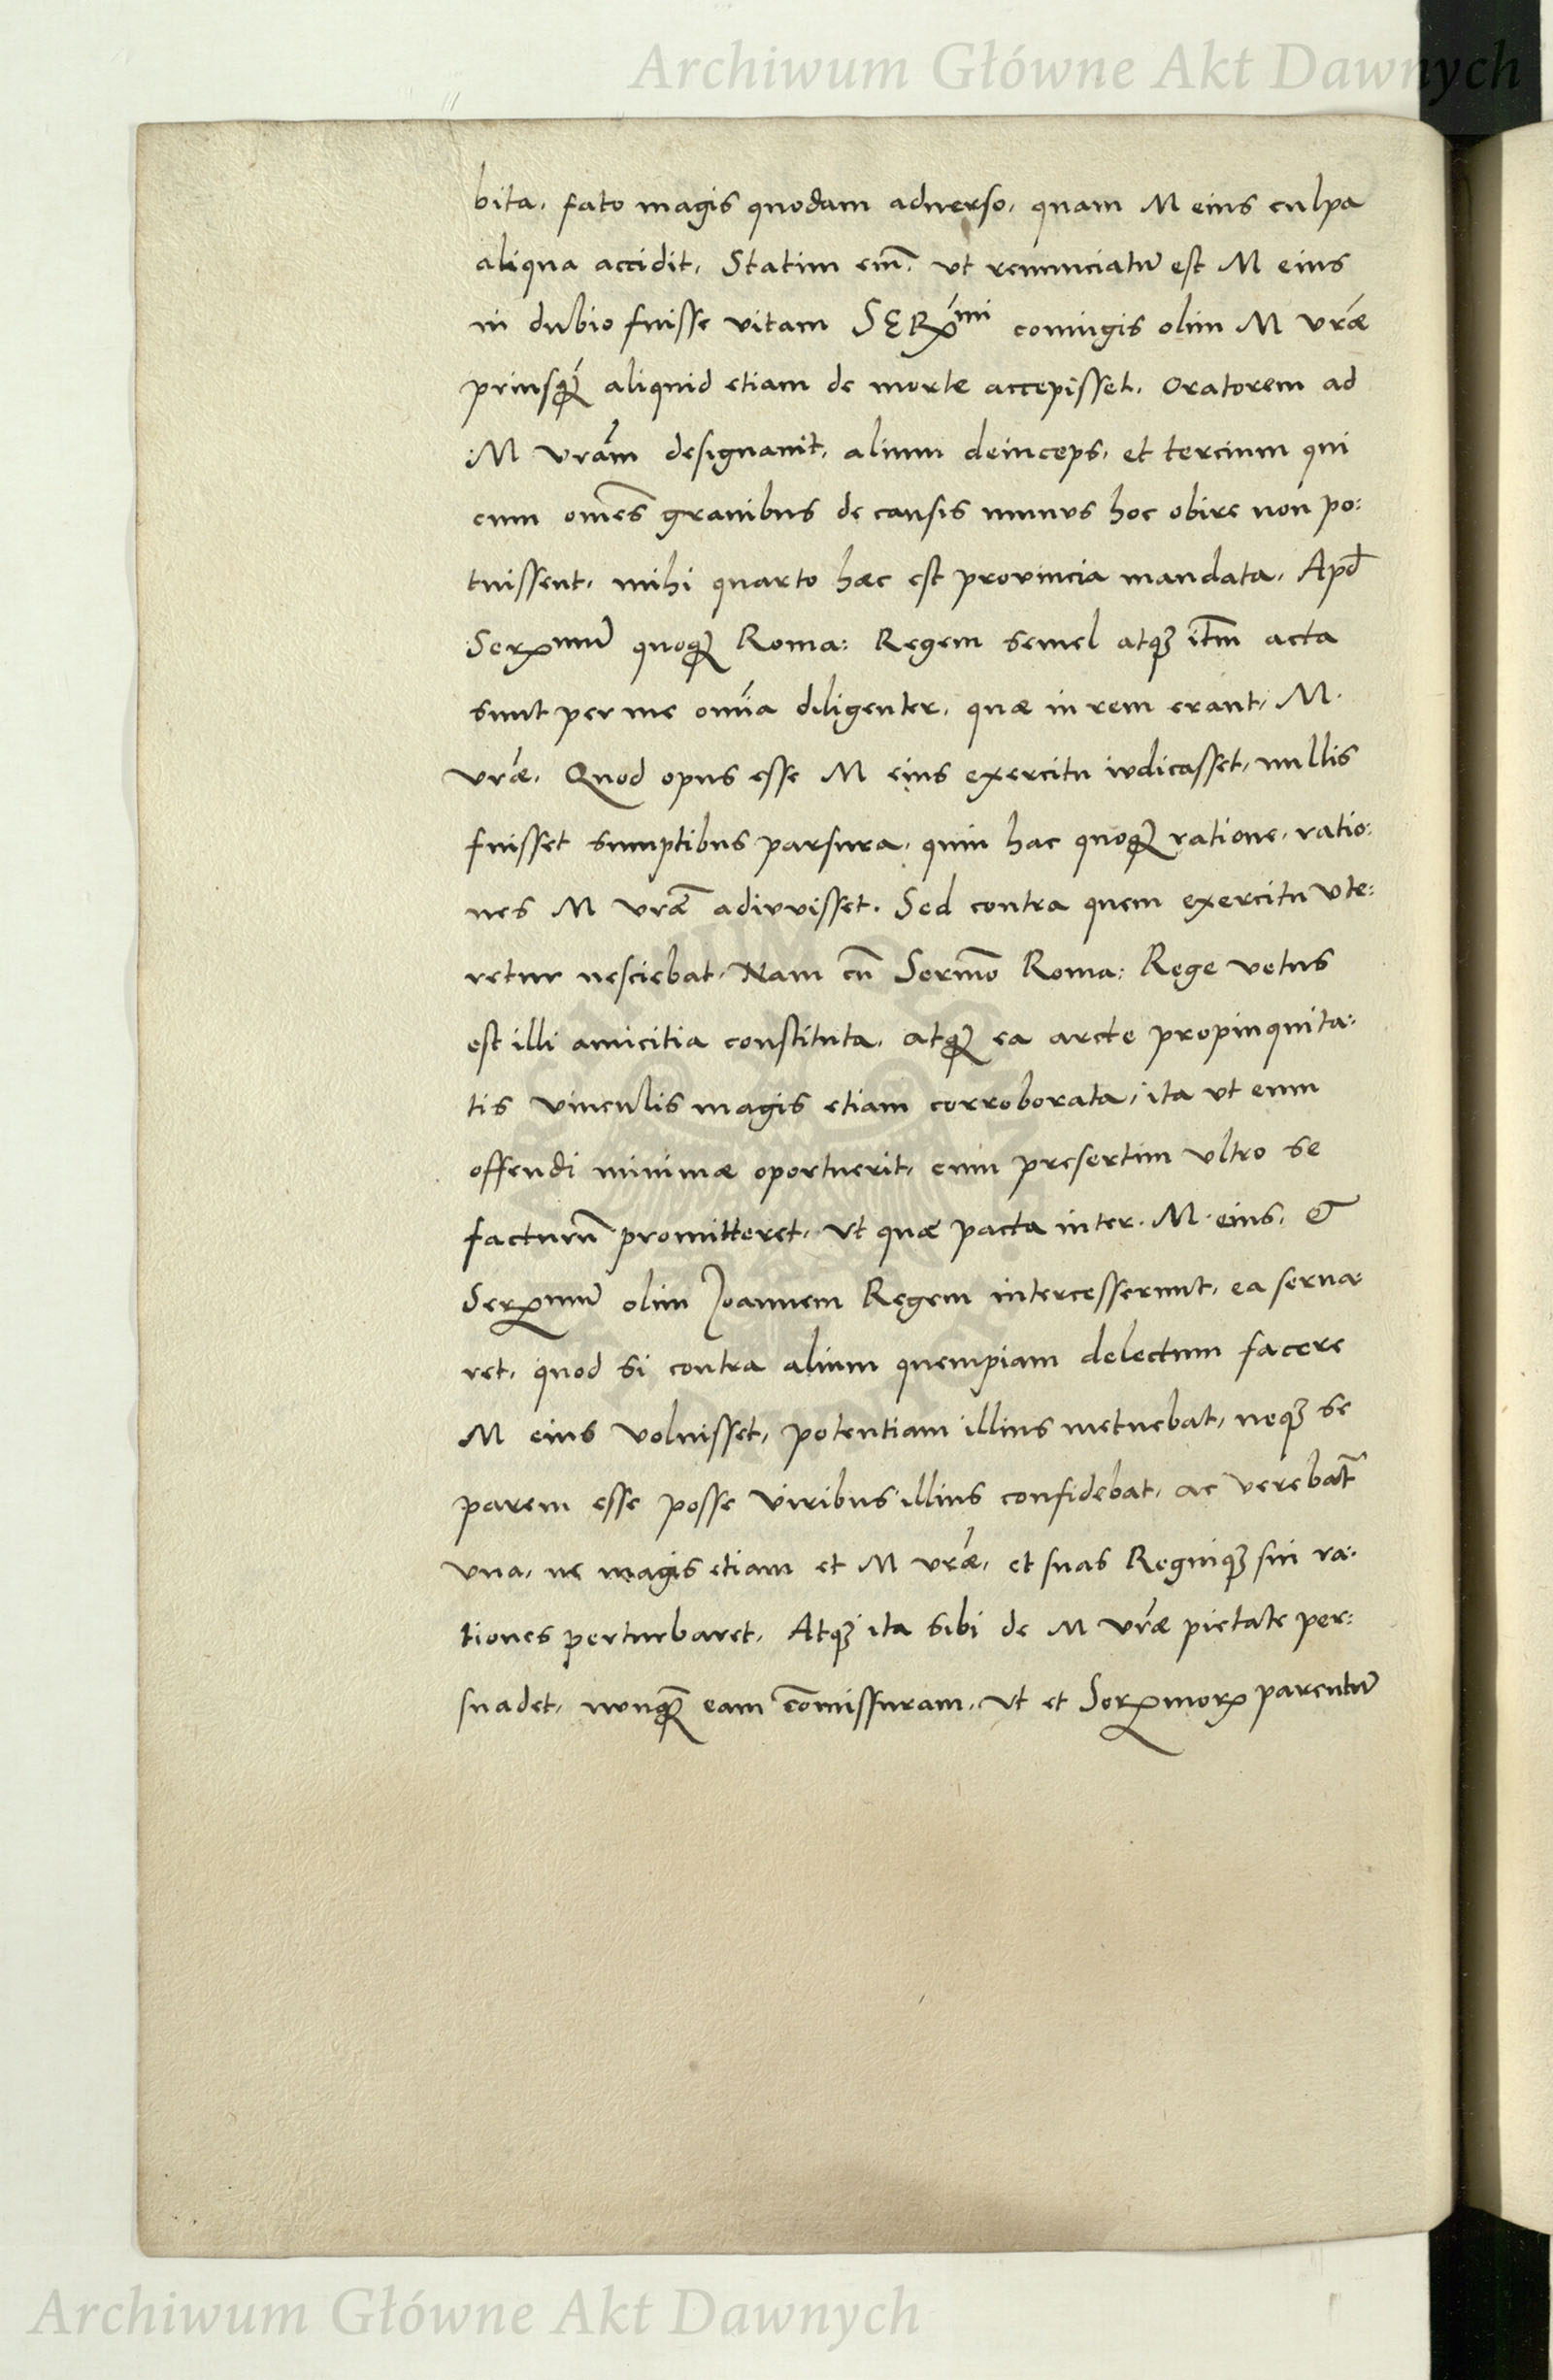 Archiwum Główne Akt Dawnych
bita, fato magis quodam aduerso, quam M eius culpa
aliqua accidit. Statim em̄, ut renunciatū est M eius
in dubio fuisse vitam SERmi coniugis olim M vrǽ
priusq́ꝫ aliquid etiam de morte accepisset. Oratorem ad
M vrám designauit, alium deinceps, et tercium qui
cum om̄es grauibus de causis munus hoc obire non po:
tuissent, mihi quarto haec est provincia mandata. Apd̄
Serᵐum quoqꝫ Roma: Regem semel atqꝫ itm̄ acta
sunt per me omía diligenter, quae in rem erant, M.
vrǽ. Quod opus esse M eius exercitu iudicasset, nullis
fuisset sumptibus parsura, quin hac quoqꝫ ratione, ratio:
nes M vrǣ adiuuisset. Sed contra quem exercitu vte:
retur nesciebat. Nam cū Serm̄o Roma: Rege vetus
est illi amicitia constituta, atqꝫ ea arcte propinquita:
tis vinculis magis etiam corroborata, ita ut eum
offendi minimæ oportuerit, cum presertim ultro se
facturū promitteret, ut quæ pacta inter. M. eius, &
Serᵐum olim Joannem Regem intercesserunt, ea serua:
ret, quod si contra alium quempiam delectum facere
M eius voluisset, potentiam illius metuebat, neqꝫ se
parem esse posse viribus illius confidebat, ac verebat᷑
vna, ne magis etiam et M vrǽ, et suas Regniqꝫ sui ra:
tiones perturbaret. Atqꝫ ita sibi de M vrǽ pietate per:
suadet, nunqꝫ eam com̄issuram, ut et Serᵐorꝝ parentū
Archiwum Główne Akt Dawnych